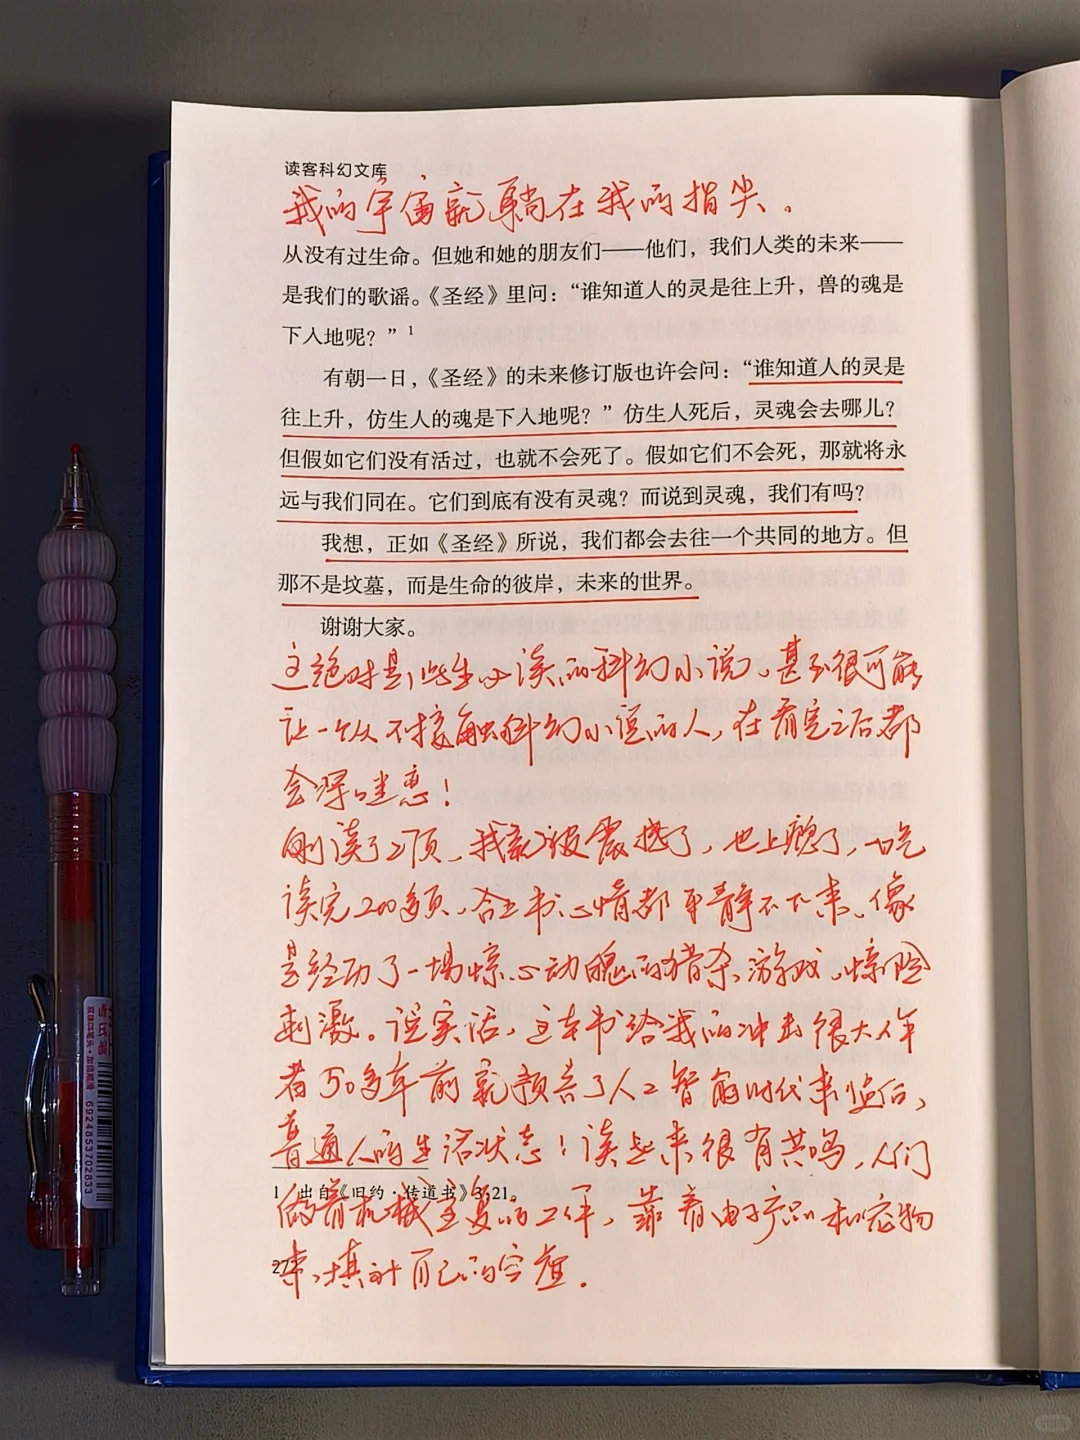 读客科幻文库
我的宇宙就躺在我的指尖。
从没有过生命。但她和她的朋友们——他们，我们人类的未来——
是我们的歌谣。《圣经》里问：“谁知道人的灵是往上升，兽的魂是
下入地呢？”1
有朝一日，《圣经》的未来修订版也许会问：“谁知道人的灵是
往上升，仿生人的魂是下入地呢？”仿生人死后，灵魂会去哪儿？
但假如它们没有活过，也就不会死了。假如它们不会死，那就将永
远与我们同在。它们到底有没有灵魂？而说到灵魂，我们有吗？
我想，正如《圣经》所说，我们都会去往一个共同的地方。但
那不是坟墓，而是生命的彼岸，未来的世界。
谢谢大家。
这绝对是此生必读的科幻小说，甚至很可能
让一个从不接触科幻小说的人，在看完之后都
会深深迷恋！
刚读了2页，我就被震撼了，也上瘾了，一口气
读完200多页，合上书心情都平静不下来，像
是经历了一场惊心动魄的猎杀游戏，惊险
刺激。说实话，这本书给我的冲击很大，作
者50多年前就预告了人工智能时代来临后，
普通人的生活状态！读起来很有共鸣，人们
1 出自《旧约·传道书》3:21。
做着机械重复的工作，靠着电子产品和宠物
27
来填补自己的空虚。
考试笔
6924853702833